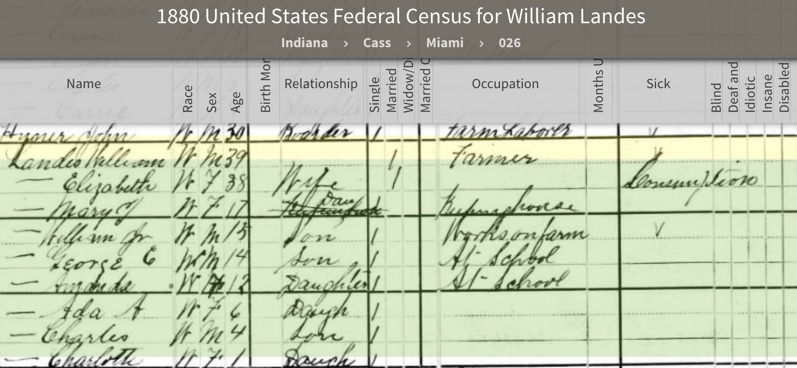 1880 United States Federal Census for William Landes
Indiana › Cass › Miami › 026
Name Race Sex Age Birth Mon Relationship Single Married Widow/Di Married C Occupation Months U Sick Blind Deaf and Idiotic Insane Disabled
John W M 30 Boarder 1 Farm Laborer
Landes William W M 39 1 Farmer
— Elizabeth W F 38 Wife 1 Consumption
— Mary W F 17 Dau 1 Keepinghouse
— William Jr W M 15 Son 1 Works on farm
— George E W M 14 Son 1 At School
— Amanda W 12 Daughter 1 At School
— Ada A W F 6 Daugh 1
— Charles W M 4 Son 1
— Charloth W F 1 Daugh 1